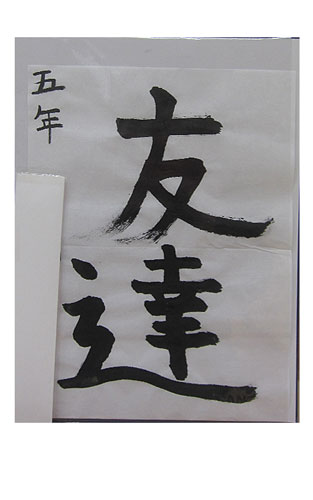 五年
友達